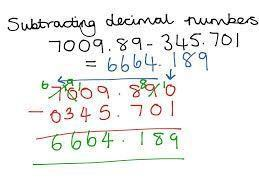 Subtracting decimal numbers
7009.89 - 345.701
= 6664.189
6 9 9 1 8 1
7009.890
- 0345.701
6664.189